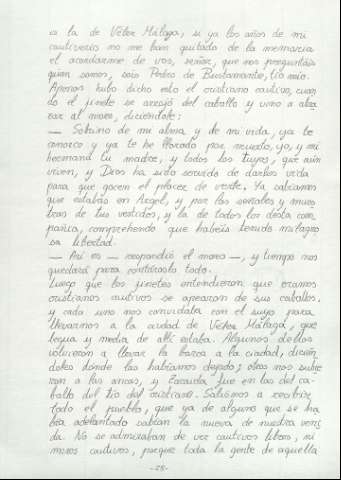 es la de Vélez Málaga, si ya los años de mi
cautiverio no me han quitado de la memoria
el acordarme de vos, señor, que nos preguntáis
quien somos, sois Pedro de Bustamante, tío mío.
Apenas hubo dicho esto el cristiano cautivo, cuan
do el jinete se arrojó del caballo y vino a abra
zar al moro, diciéndole:
— Sobrino de mi alma y de mi vida, ya te
conozco y ya te he llorado por muerto, yo, y mi
hermana tu madre, y todos los tuyos, que aún
viven, y Dios ha sido servido de darles vida
para que gocen el placer de verte. Ya sabíamos
que estabas en Argel, y por las señales y mues
tras de tus vestidos, y la de todos los desta com
pañía, comprehendo que habéis tenido milagro
sa libertad.
— Así es — respondió el moro —, y tiempo nos
quedará para contároslo todo.
Luego que los jinetes entendieron que éramos
cristianos cautivos se apearon de sus caballos.
y cada uno nos convidaba con el suyo para
llevarnos a la ciudad de Vélez Málaga, que
legua y media de allí estaba. Algunos dellos
volvieron a llevar la barca a la ciudad, dicién
doles dónde las habíamos dejado; otros nos subie
ron a las ancas, y Zoraida fue en las del ca-
ballo del tío del cristiano. Saliónos a recibir
todo el pueblo, que ya de alguno que se ha
bía adelantado sabían la nueva de nuestra veni
da. No se admiraban de ver cautivos libres, ni
moros cautivos, porque toda la gente de aquella
-28-